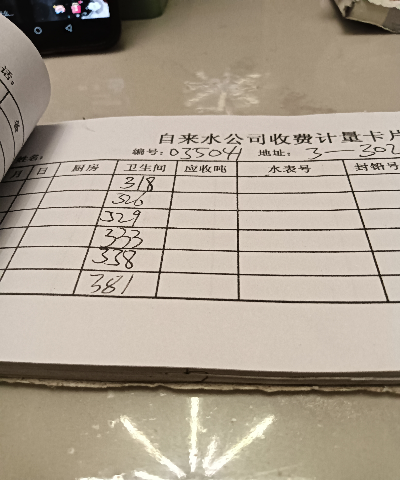 话:
自来水公司收费计量卡片
名: 编号: 03504 地址: 3-302
月 日 厨房 卫生间 应收吨 水表号 封铅号
318
326
329
333
338
381